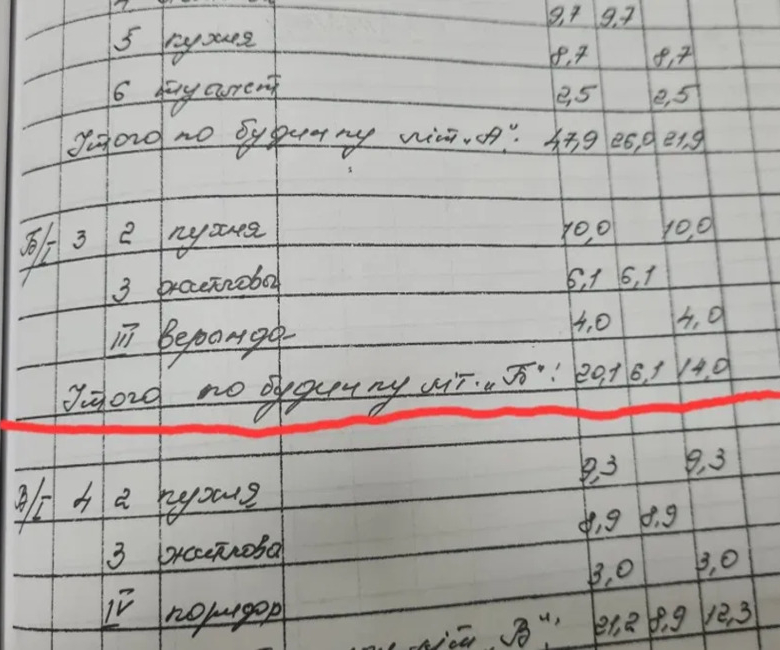 9,7 9,7
5 кухня 8,7 8,7
6 туалет 2,5 2,5
Итого по будинку літ. „А": 47,9 26,0 21,9
Б/І 3 2 кухня 10,0 10,0
3 житлова 6,1 6,1
ІІІ веранда 4,0 4,0
Итого по будинку літ. „Б": 20,1 6,1 14,0
В/І 4 2 кухня 9,3 9,3
3 житлова 8,9 8,9
IV коридор 3,0 3,0
літ „В": 21,2 8,9 12,3